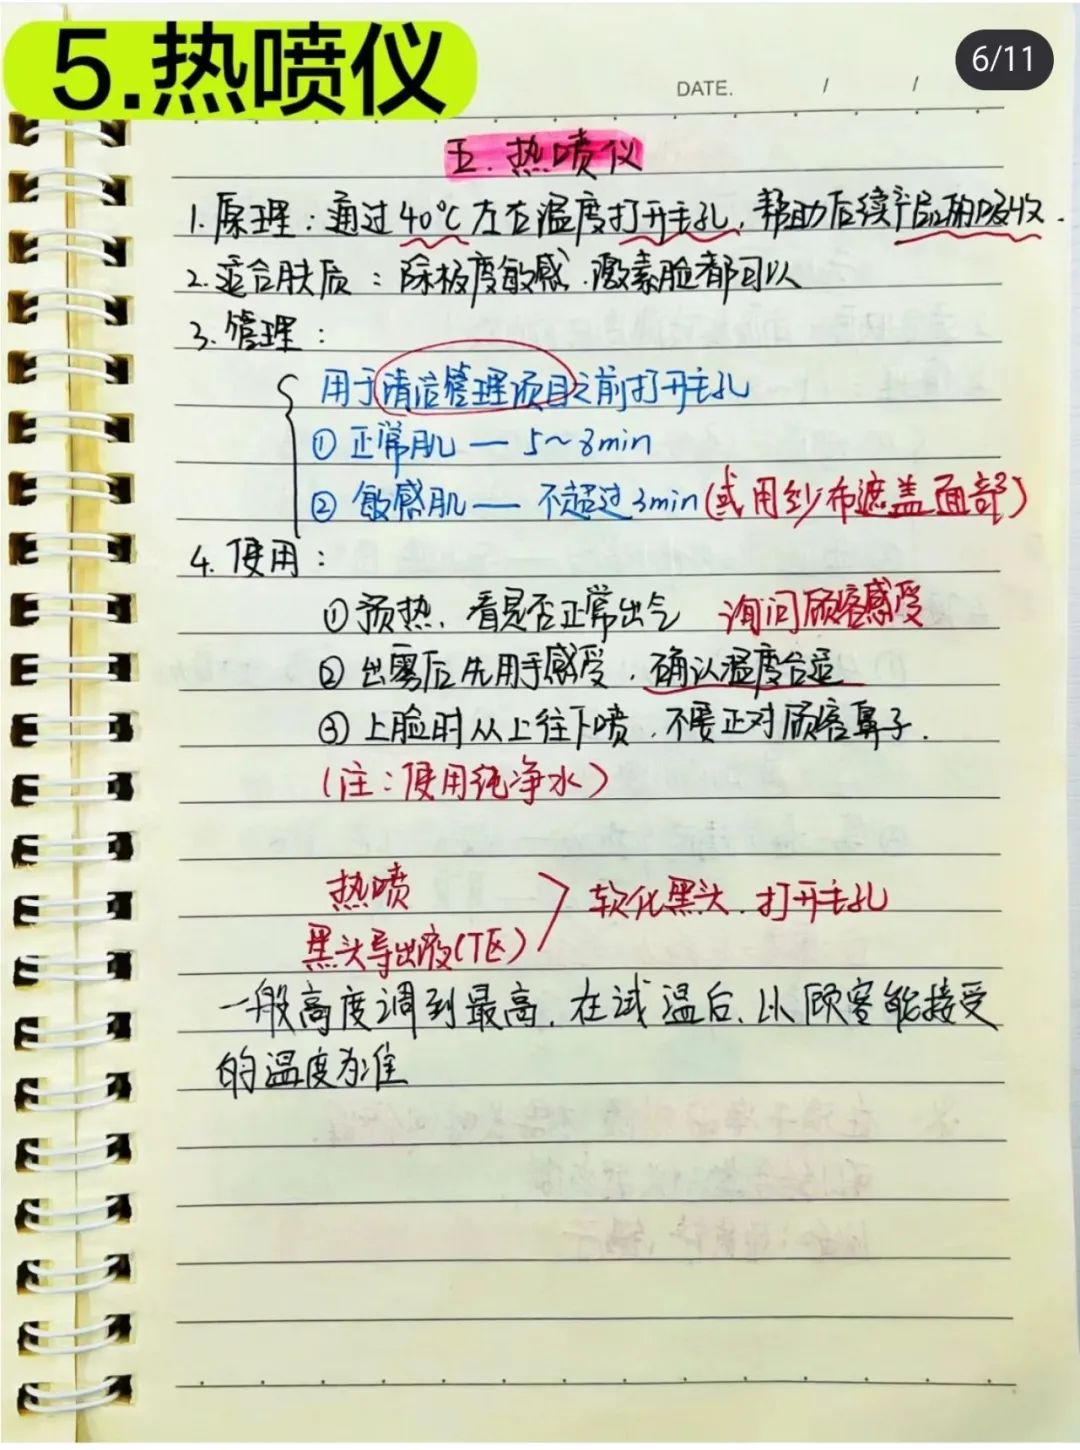 5.热喷仪
6/11
DATE. / /
五.热喷仪
1.原理：通过40℃左右温度打开毛孔，帮助后续产品的吸收.
2.适合肤质：除极度敏感、激素脸都可以
3.管理：
用于清洁管理项目之前打开毛孔
① 正常肌 — 5~8min
② 敏感肌 — 不超过3min(或用纱布遮盖面部)
4.使用：
①预热、看是否正常出气 询问顾客感受
② 出雾后先用手感受，确认温度合适
③ 上脸时从上往下喷，不要正对顾客鼻子.
(注：使用纯净水)
热喷
软化黑头、打开毛孔
黑头导出液(T区)
一般高度调到最高，在试温后、以顾客能接受
的温度为准